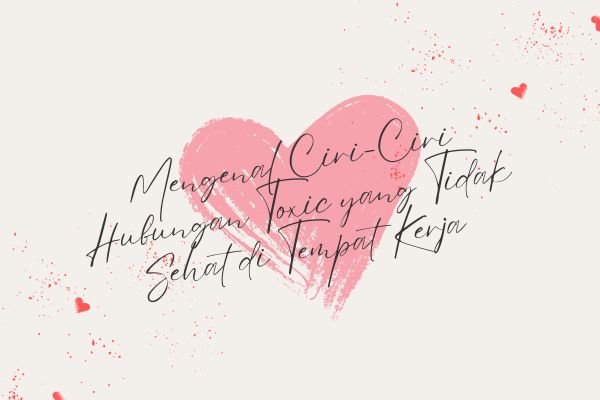 Mengenal Ciri-Ciri
Hubungan Toxic yang Tidak
Sehat di Tempat Kerja